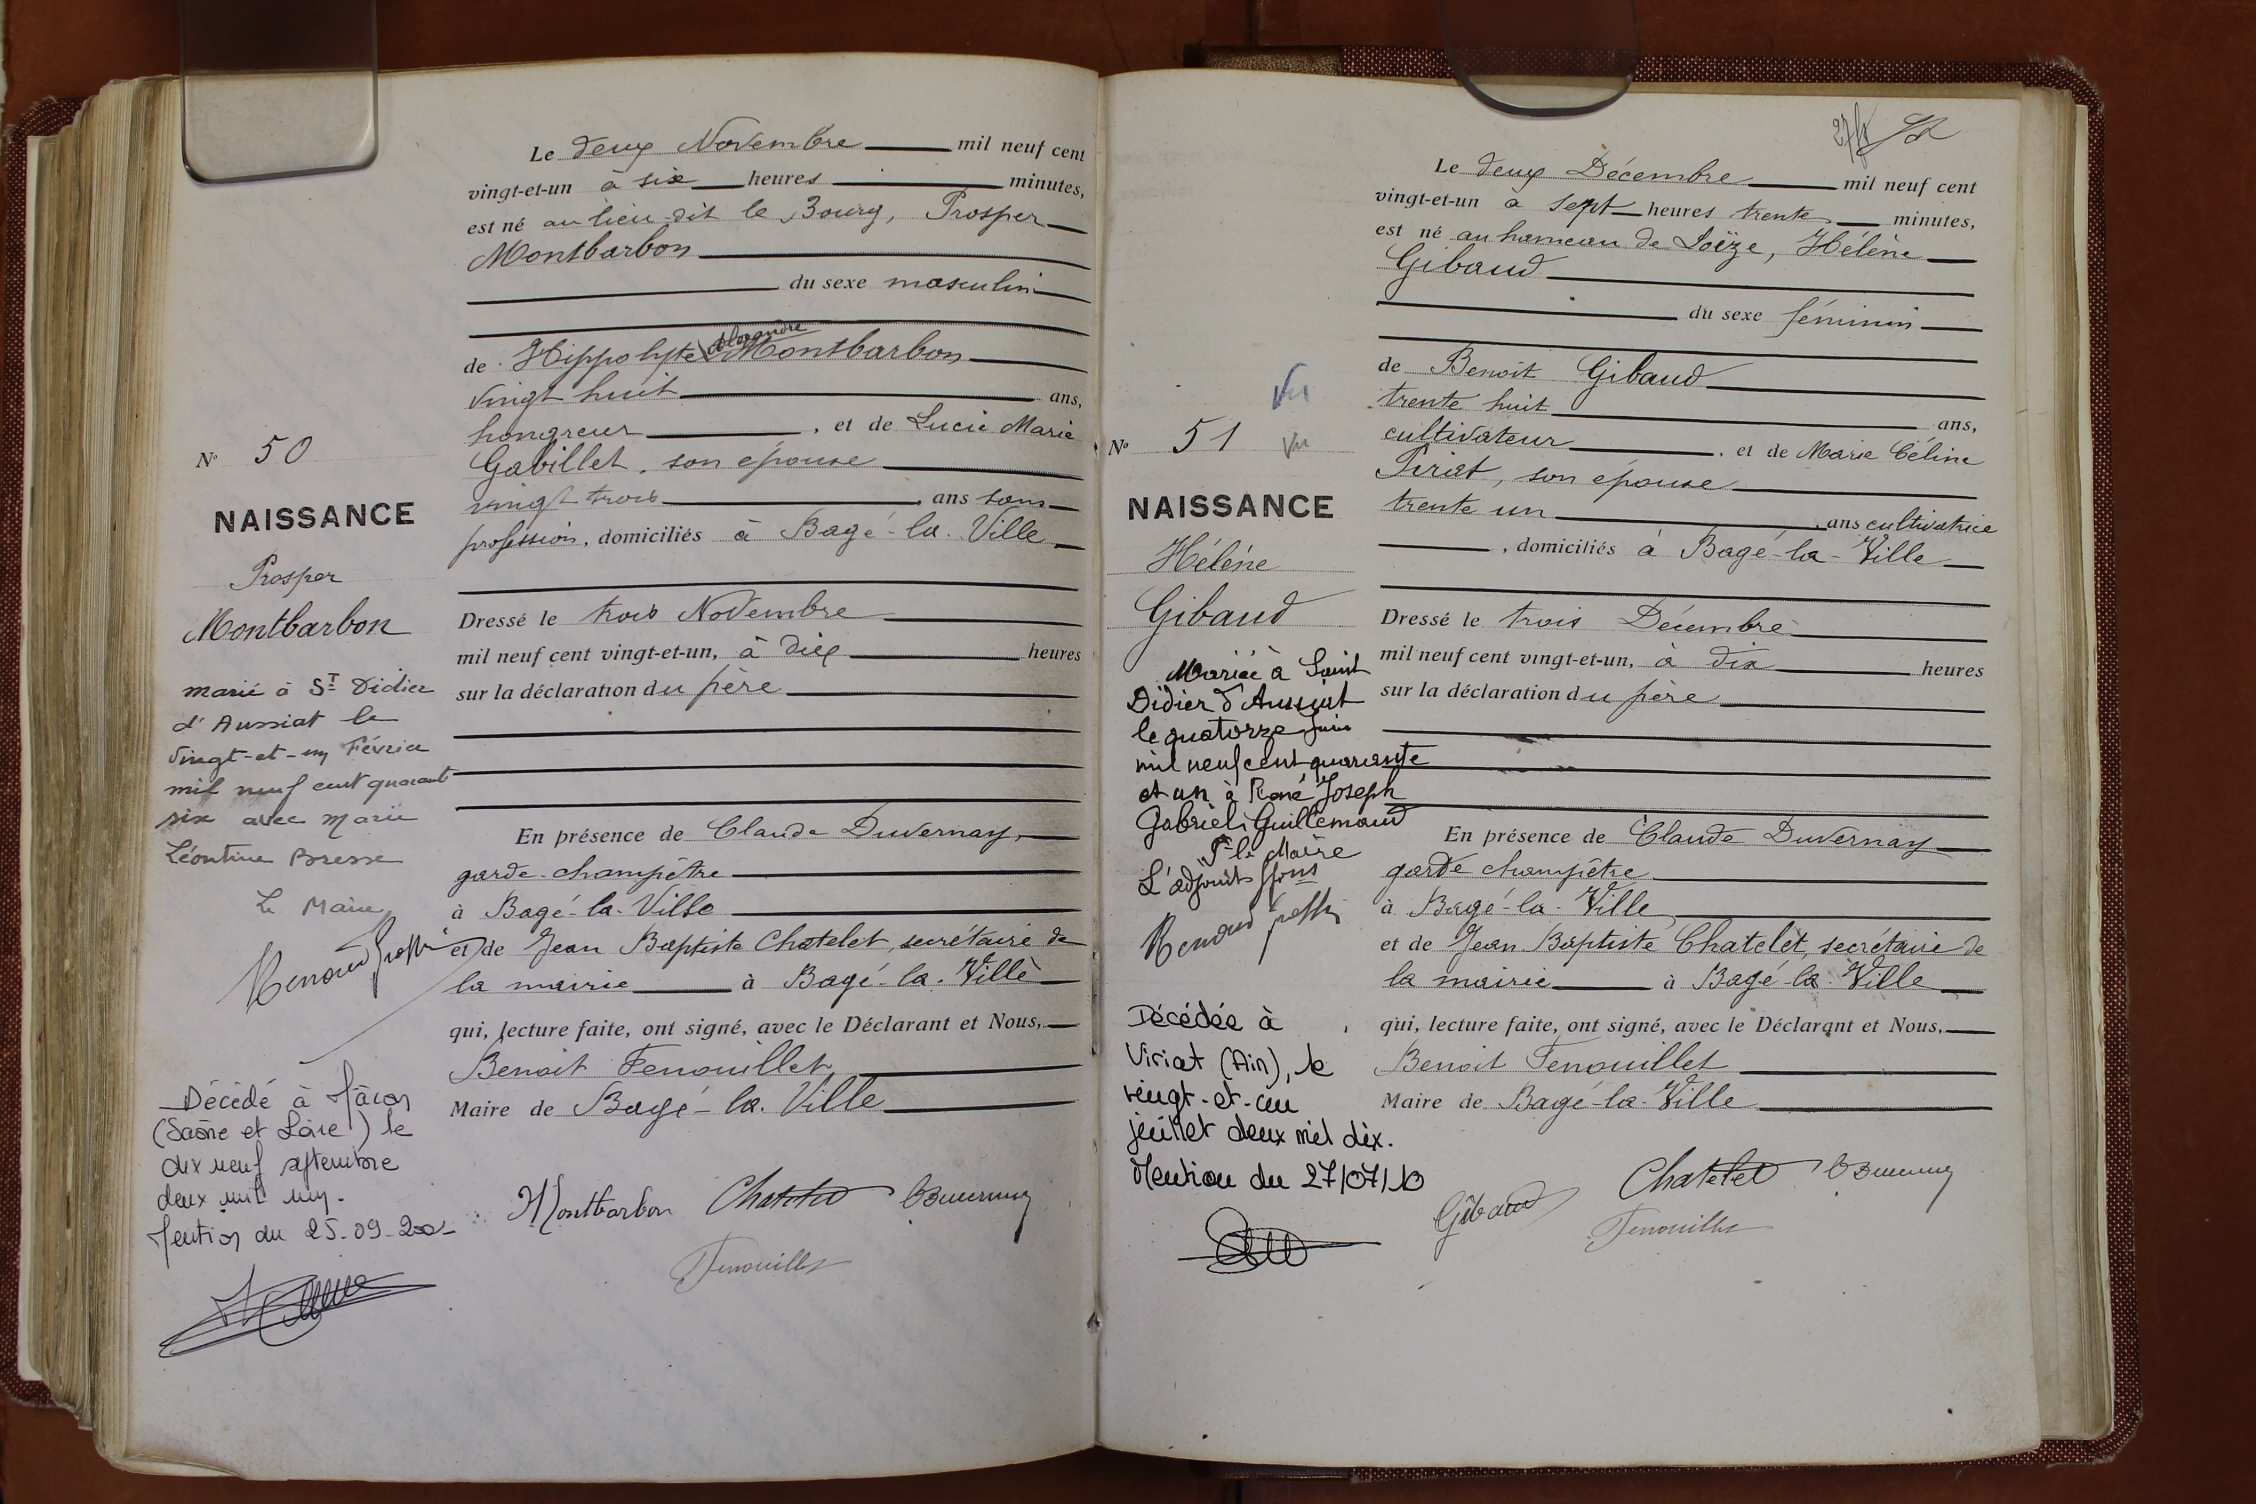 Le deux Novembre mil neuf cent
vingt-et-un à six heures minutes,
est né au lieu dit le Bourg, Prosper
Montbarbon
du sexe masculin
Alexandre
de Hippolyte Montbarbon
vingt huit ans,
hongreur, et de Lucie Marie
Gabillet, son épouse
vingt trois ans sans
profession, domiciliés à Bagé-la-Ville
Dressé le trois Novembre
mil neuf cent vingt-et-un, à dix heures
sur la déclaration du père
En présence de Claude Duvernay,
garde-champêtre
à Bagé-la-Ville
et de Jean Baptiste Chatelet, secrétaire de
la mairie à Bagé-la-Ville
qui, lecture faite, ont signé, avec le Déclarant et Nous,
Benoit Fenouillet
Maire de Bagé-la-Ville
Montbarbon Chatelet
Fenouillet
No 50
NAISSANCE
Prosper
Montbarbon
marié à St Didier
d'Aussiat le
vingt-et-un Février
mil neuf cent quarante
six avec Marie
Léontine Bresse
Le Maire
Décédé à Mâcon
(Saône et Loire) le
dix neuf septembre
deux mil un.
Mention du 25-09-2001
Le deux Décembre mil neuf cent
vingt-et-un à sept heures trente minutes,
est né au hameau de Loëze, Hélène
Gibaud
du sexe féminin
de Benoit Gibaud
trente huit ans,
cultivateur, et de Marie Céline
Piriat, son épouse
trente un, ans cultivatrice
, domiciliés à Bagé-la-Ville
Dressé le trois Décembre
mil neuf cent vingt-et-un, à dix heures
sur la déclaration du père
En présence de Claude Duvernay
garde champêtre
à Bagé-la-Ville
et de Jean Baptiste Chatelet, secrétaire de
la mairie à Bagé-la-Ville
qui, lecture faite, ont signé, avec le Déclarant et Nous,
Benoit Fenouillet
Maire de Bagé-la-Ville
Gibaud Chatelet
Fenouillet
Vu
No 51 Vu
NAISSANCE
Hélène
Gibaud
Mariée à Saint
Didier d'Aussiat
le quatorze Juin
mil neuf cent quarante
et un à René Joseph
Gabriel Guillemaud
Pr le Maire
L'adjoint
Décédée à
Viriat (Ain), le
vingt-et-un
juillet deux mil dix.
Mention du 27/07/10